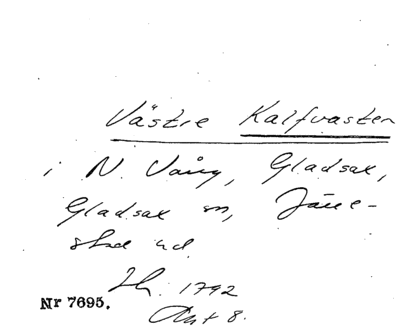 Västre Kalfvasten
i N. Vång, Gladsax,
Gladsax sn, Järre-
stad hd.
1792
Akt 8.
Nr 7695.